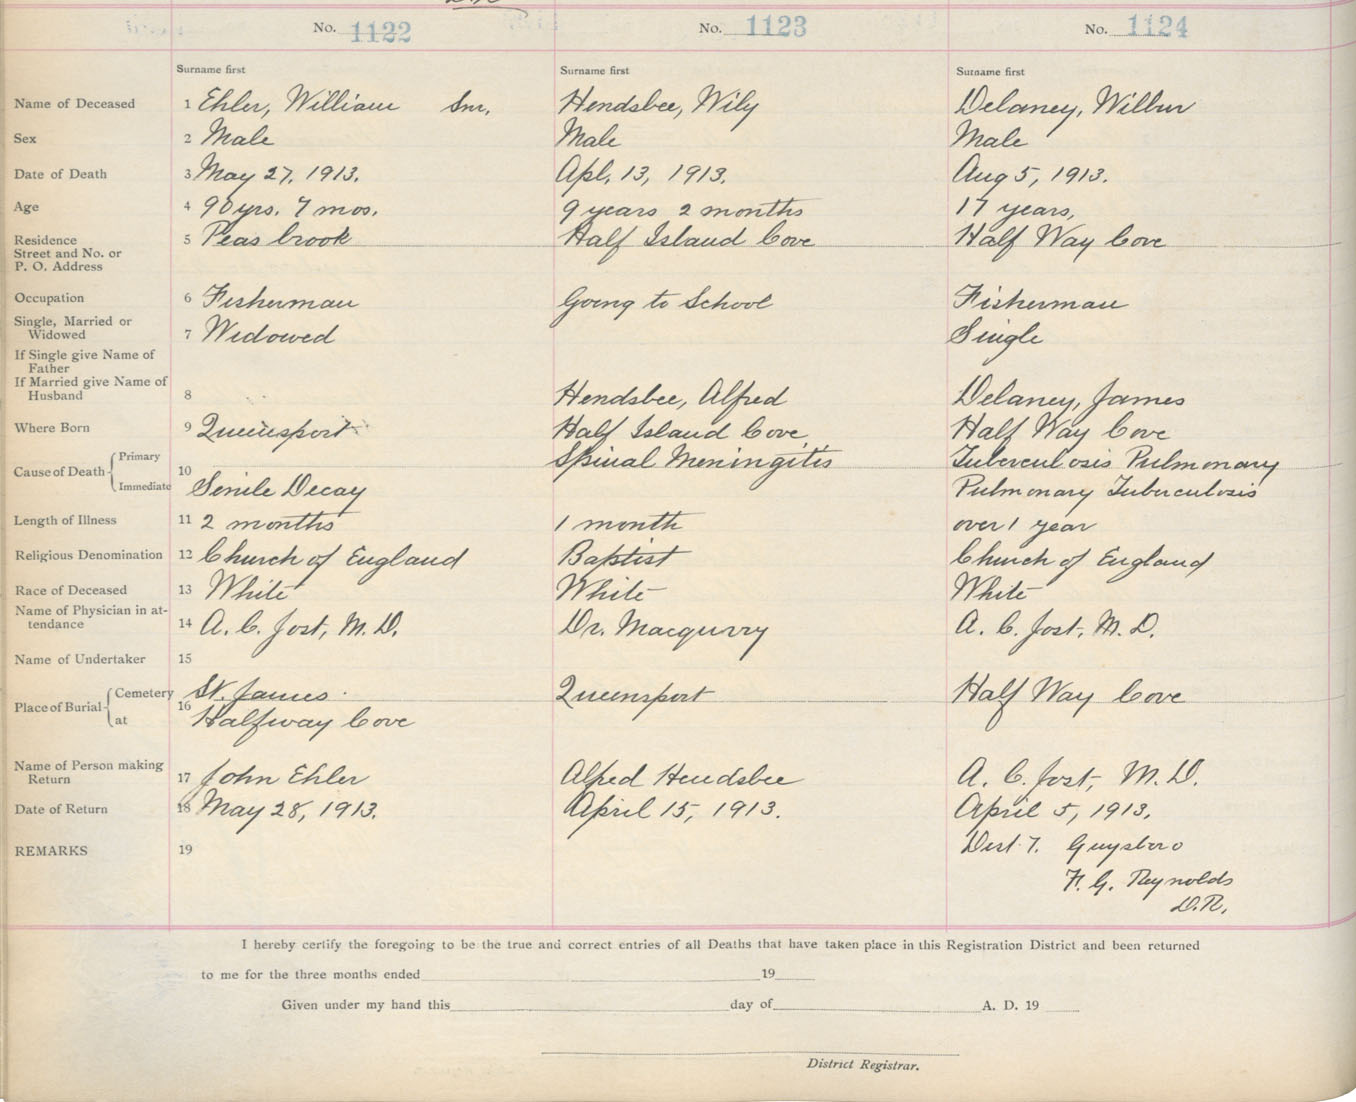 No. 1122 No. 1123 No. 1124
Surname first Surname first Surname first
Name of Deceased 1 Ehler, William Snr, Hendsbee, Wily Delaney, Wilbur
Sex 2 Male Male Male
Date of Death 3 May 27, 1913. Apl. 13, 1913. Aug 5, 1913.
Age 4 90 yrs. 7 mos. 9 years 2 months 17 years,
Residence 5 Peas brook Half Island Cove Half Way Cove
Street and No. or
P. O. Address
Occupation 6 Fisherman Going to School Fisherman
Single, Married or
Widowed 7 Widowed Single
If Single give Name of
Father
If Married give Name of
Husband 8 Hendsbee, Alfred Delaney, James
Where Born 9 Queensport Half Island Cove Half Way Cove
Cause of Death Primary 10 Spinal Meningitis Tuberculosis Pulmonary
Immediate Senile Decay Pulmonary Tuberculosis
Length of Illness 11 2 months 1 month over 1 year
Religious Denomination 12 Church of England Baptist Church of England
Race of Deceased 13 White White White
Name of Physician in at-
tendance 14 A. C. Jost, M. D. Dr. Macqurry A. C. Jost, M. D.
Name of Undertaker 15
Place of Burial Cemetery 16 St. James Queensport Half Way Cove
at Halfway Cove
Name of Person making
Return 17 John Ehler Alfred Hendsbee A. C. Jost, M. D.
Date of Return 18 May 28, 1913. April 15, 1913. April 5, 1913.
REMARKS 19 Dist 7. Guysboro
F. G. Reynolds
D.R.
I hereby certify the foregoing to be the true and correct entries of all Deaths that have taken place in this Registration District and been returned
to me for the three months ended 19
Given under my hand this day of A. D. 19
District Registrar.